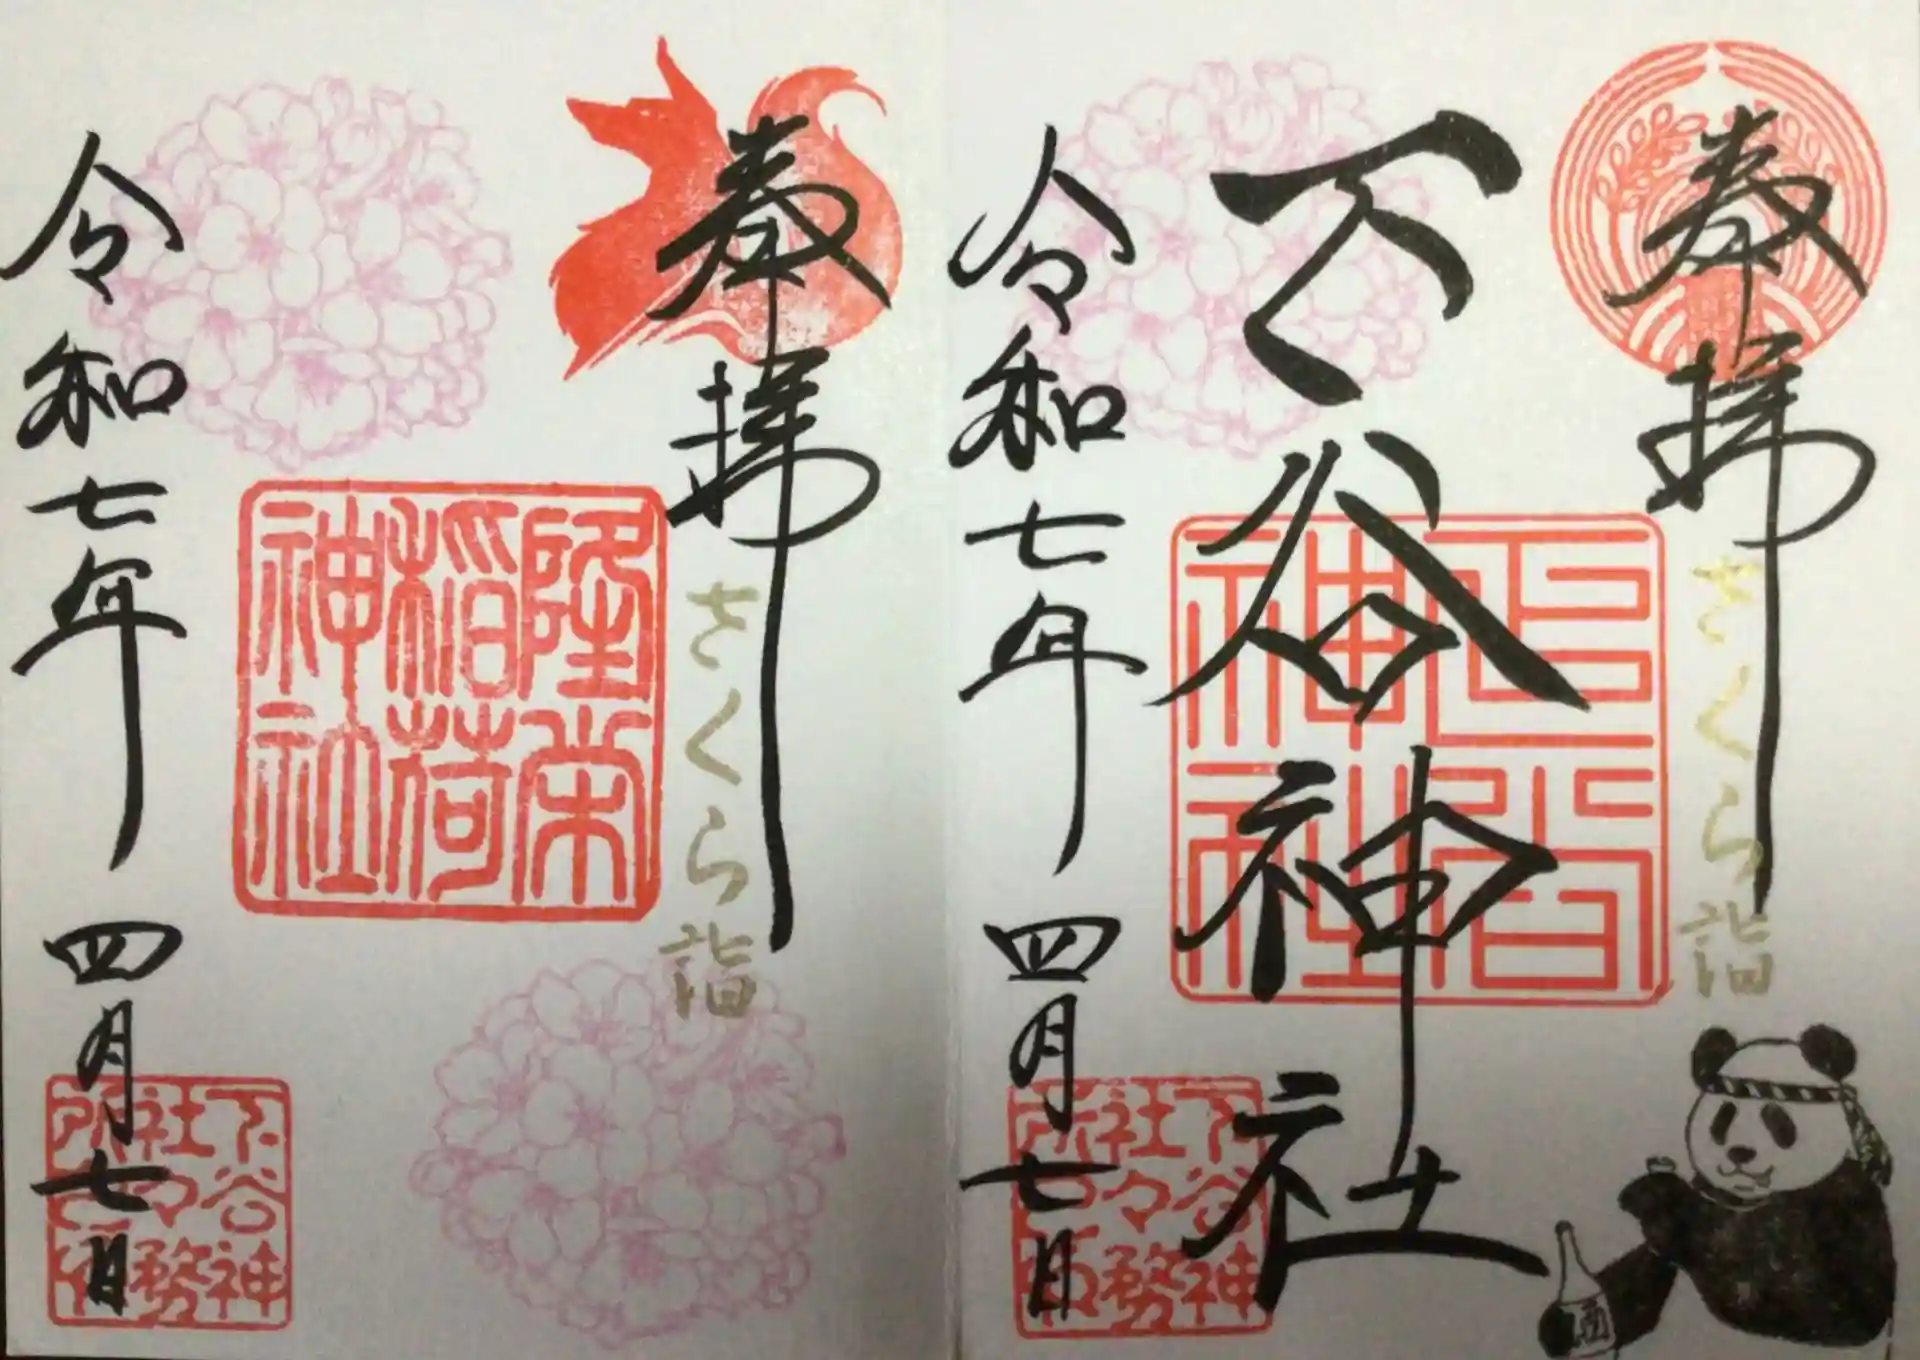 奉拝
さくら詣
下谷神社
下谷
神社
令和七年 四月七日
下谷神
社々務
所之印
酒
奉拝
さくら詣
隆栄
稲荷
神社
令和七年 四月七日
下谷神
社々務
所之印